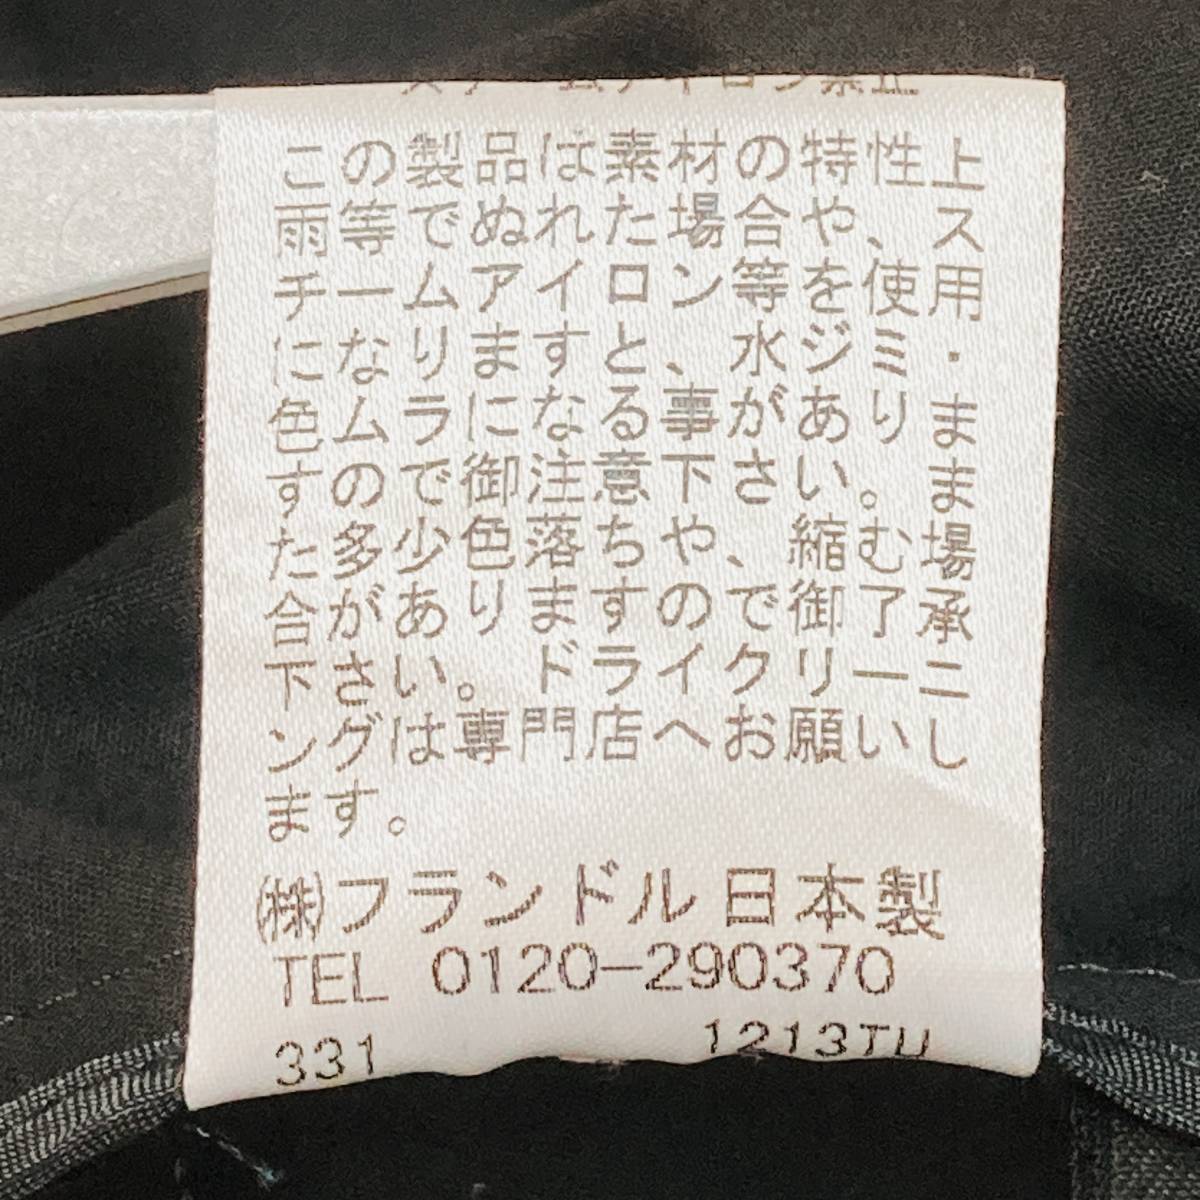 スチームアイロン禁止
この製品は素材の特性上
雨等でぬれた場合や、ス
チームアイロン等を使用
になりますと、水ジミ・
色ムラになる事がありま
すので御注意下さい。ま
た多少色落ちや、縮む場
合がありますので御了承
下さい。ドライクリーニ
ングは専門店へお願いし
ます。
㈱フランドル 日本製
TEL 0120-290370
331 1213TU